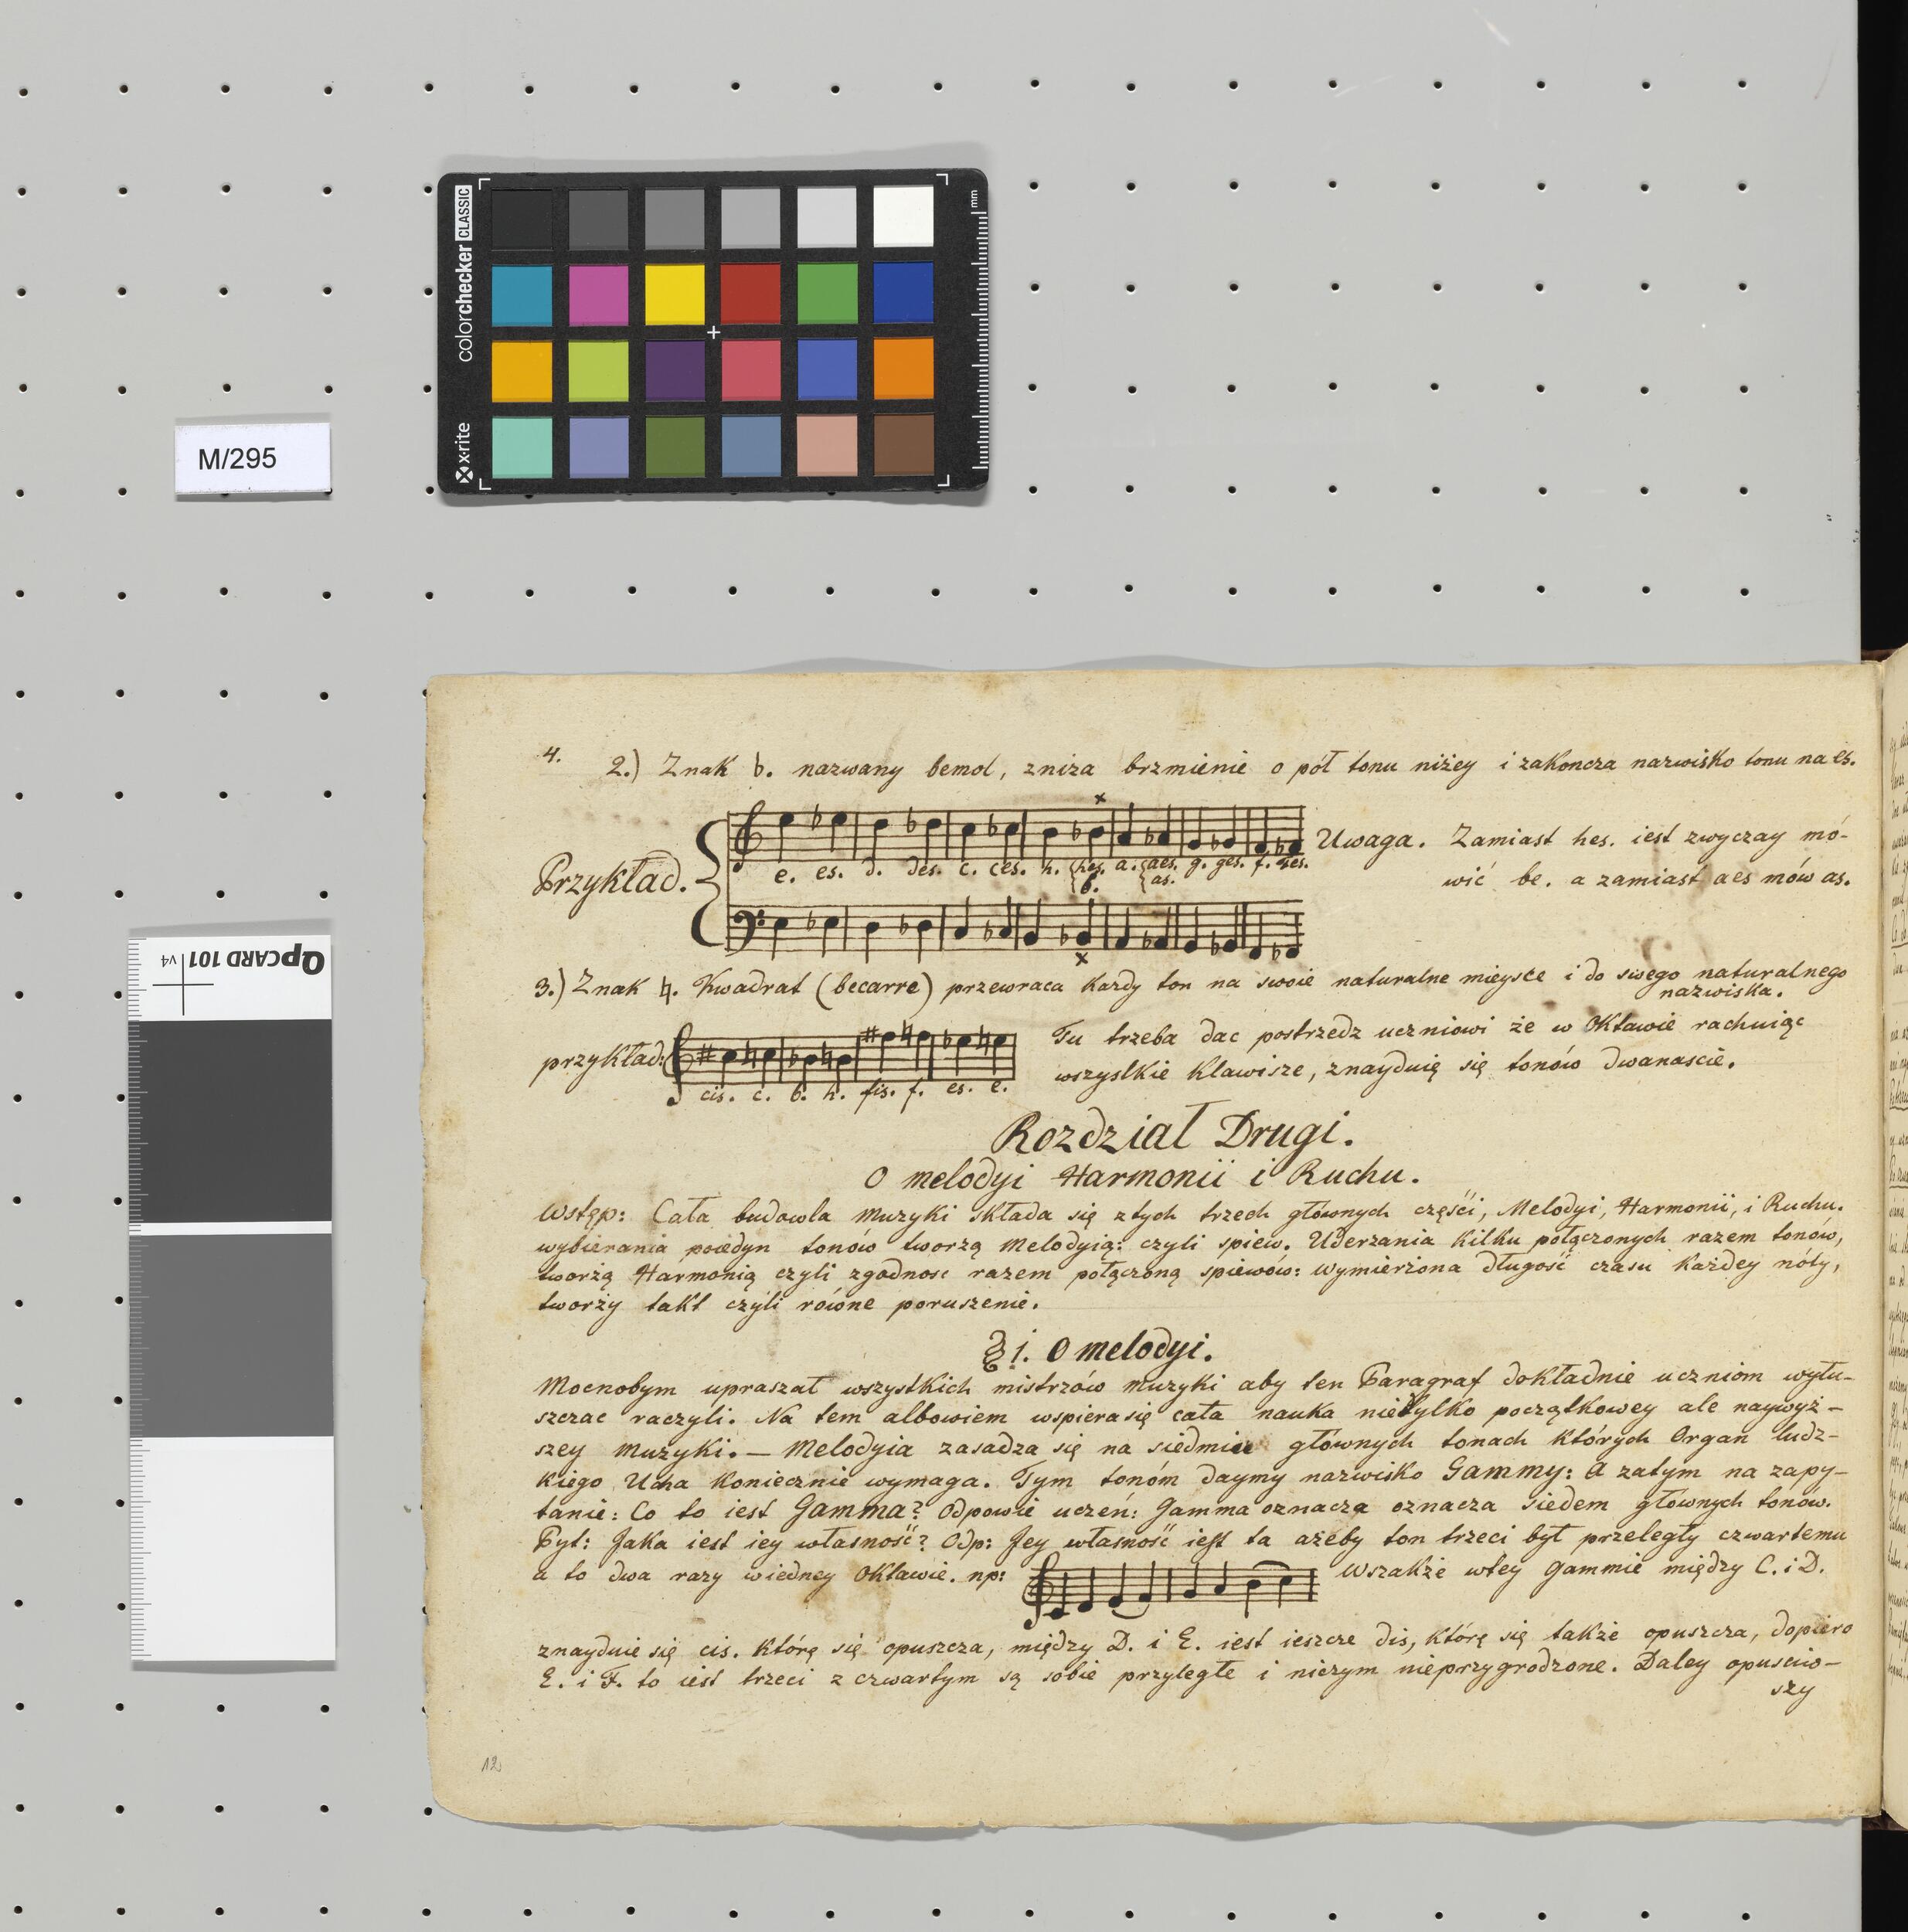 colorchecker CLASSIC
x-rite
mm
M/295
QPCARD 101 v4
4. 2.) Znak ♭. nazwany bemol, zniza brzmienie o pół tonu niżey i zakoncza nazwisko tonu na es.
Przykład.
e. es. d. des. c. ces. h. hes. a. aes. g. ges. f. fes.
b. as.
Uwaga. Zamiast hes. iest zwyczay mó-
wić be. a zamiast aes mów as.
3.) Znak ♮. Kwadrat (becarre) przewraca Kazdy ton na swoie naturalne mieysce i do swego naturalnego
nazwiska.
przykład:
cis. c. b. h. fis. f. es. e.
Tu trzeba dac postrzedz uczniowi że w Oktawie rachuiąc
wszystkie Klawisze, znayduię się tonów dwanascie.
Rozdział Drugi.
O melodyi Harmonii i Ruchu.
Wstęp: Cała budowla Muzyki składa się z tych trzech głównych części, Melodyi, Harmonii, i Ruchu.
wybierania poiedyn tonów tworzą Melodyią: czyli spiew. Uderzania kilku połączonych razem tonów,
tworzą Harmonią czyli zgodnosc razem połączoną spiewów: Wymierzona długość czasu Każdey nóty,
tworzy takt czyli równe poruszenie.
§ 1. O melodyi.
Mocnobym upraszał wszystkich mistrzów muzyki aby ten Paragraf dokładnie uczniom wytłu-
szczac raczyli. Na tem albowiem wspiera się cała nauka nietylko początkowey ale naywyż-
szey Muzyki. — Melodyia zasadza się na siedmiu głównych tonach których Organ ludz-
kiego Ucha Koniecznie wymaga. Tym tonóm daymy nazwisko Gammy: A zatym na zapy-
tanie: Co to iest Gamma? Odpowie uczeń: Gamma oznacza oznacza siedem głównych tonów.
Pyt: Jaka iest iey własność? Odp: Jey własność iest ta ażeby ton trzeci był przeległy czwartemu
a to dwa razy wiedney Oktawie. np: Wszakże wtey Gammie między C. i D.
znayduie się cis. którę się opuszcza, między D. i E. iest ieszcze dis, którę się także opuszcza, dopiero
E. i F. to iest trzeci z czwartym są sobie przyległe i niczym nieprzygrodzone. Daley opusciw-
szy
12